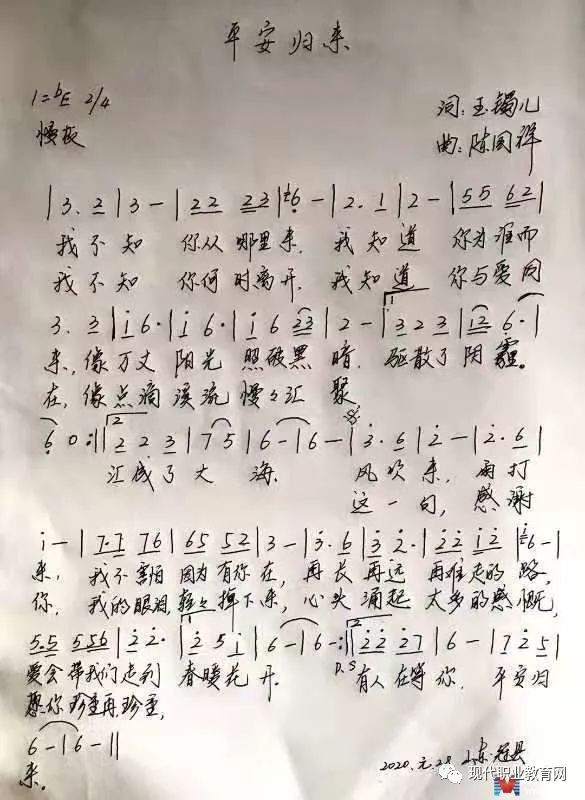 平安归来
1=♭E 2/4
词:玉镯儿
慢板
曲:陈国祥
|3. 2|3 -|22 23|♯6 -|2. 1|2 -|55 62|
我不知 你从哪里来, 我知道 你为谁而
我不知 你何时离开, 我知道 你与爱同
3. 3|i 6.|i 6.|i 6 23|2 -|1 3 2 3|12 6.|
来,像万丈 阳光 照破黑 暗. 驱散了阴霾。
在,像点滴 溪流 慢々汇 聚
6 0:|2 2 2 3|7 5|6 -|6 -|3. 6|2 -|2. 6|
汇成了大 海. 风吹来, 雨打
这一句, 感谢
i -|7.7 76|65 52|3 -|3. 6|3 2.|22 12|6 -|
来, 我不害怕 因为有你在, 再长再远 再难走的 路,
你, 我的眼泪 轻々掉下来, 心头涌起 太多的感慨,
5.5 556|2 2.|2 5 i|6 -|6 -:|2 22 27|6 -|7 2 5|
D.S
爱会带我们走到 春暖花开. 有人在等你. 平安归
愿你珍重再珍重,
6 -|6 -||
来。
2020.元.28 山东.冠县
现代职业教育网